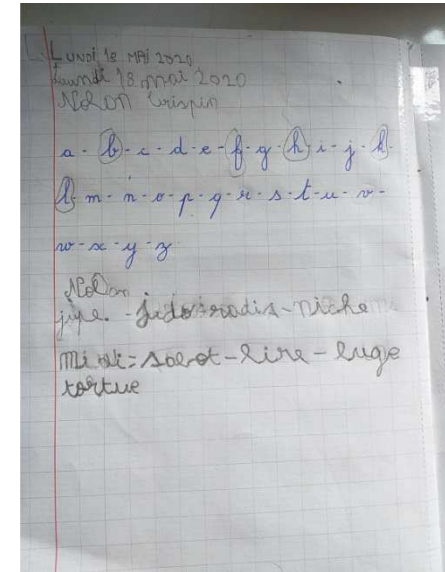 Lundi 18 MAi 2020
Lundi 18 mai 2020
NOLON Crispin
a - b - c - d - e - f - g - h - i - j - k -
l - m - n - o - p - q - r - s - t - u - v -
w - x - y - z
Nolon
jupe. - judo - radis - niche
- sabot - lire - luge
tortue